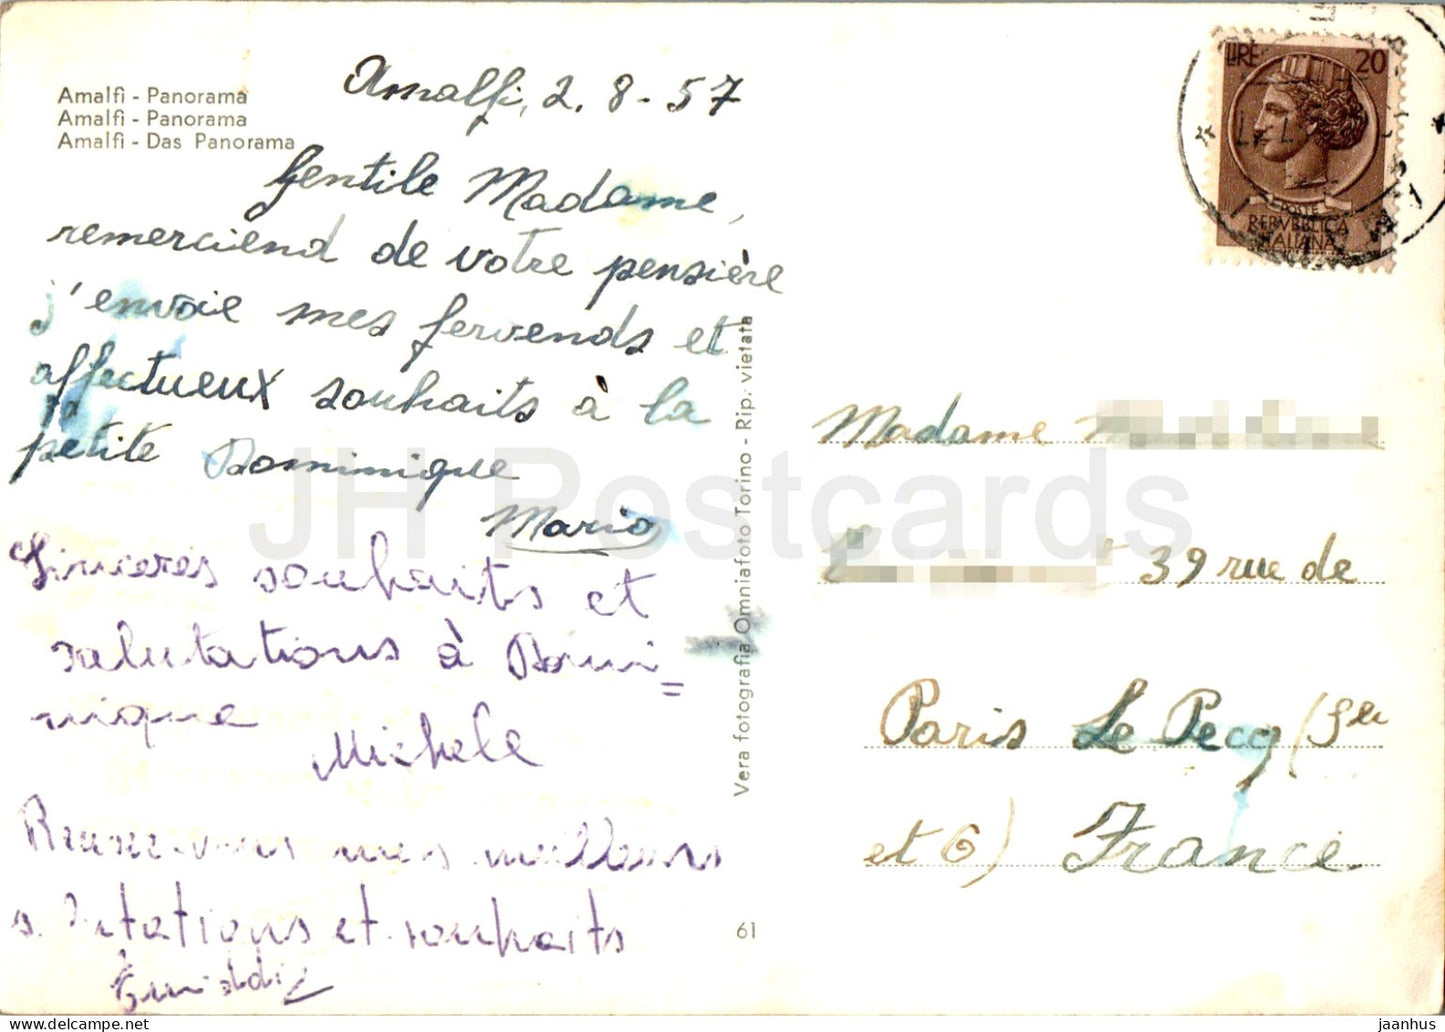 Amalfi - Panorama
Amalfi - Panorama
Amalfi - Das Panorama
Amalfi, 2. 8 - 57
Gentile Madame,
remerciend de votre pensière
j'envoie mes fervends et
affectueux souhaits à la
petite Dominique
Mario
Sinceres souhaits et
salutations à Domi=
nique
Michele
vous mes meilleurs
et souhaits
Vera fotografia Omniafoto Torino - Rip. vietata
61
LIRE 20
REPVBBLICA
ITALIANA
Madame
39 rue de
Paris Le Pecq (S
et O) France
JH Postcards